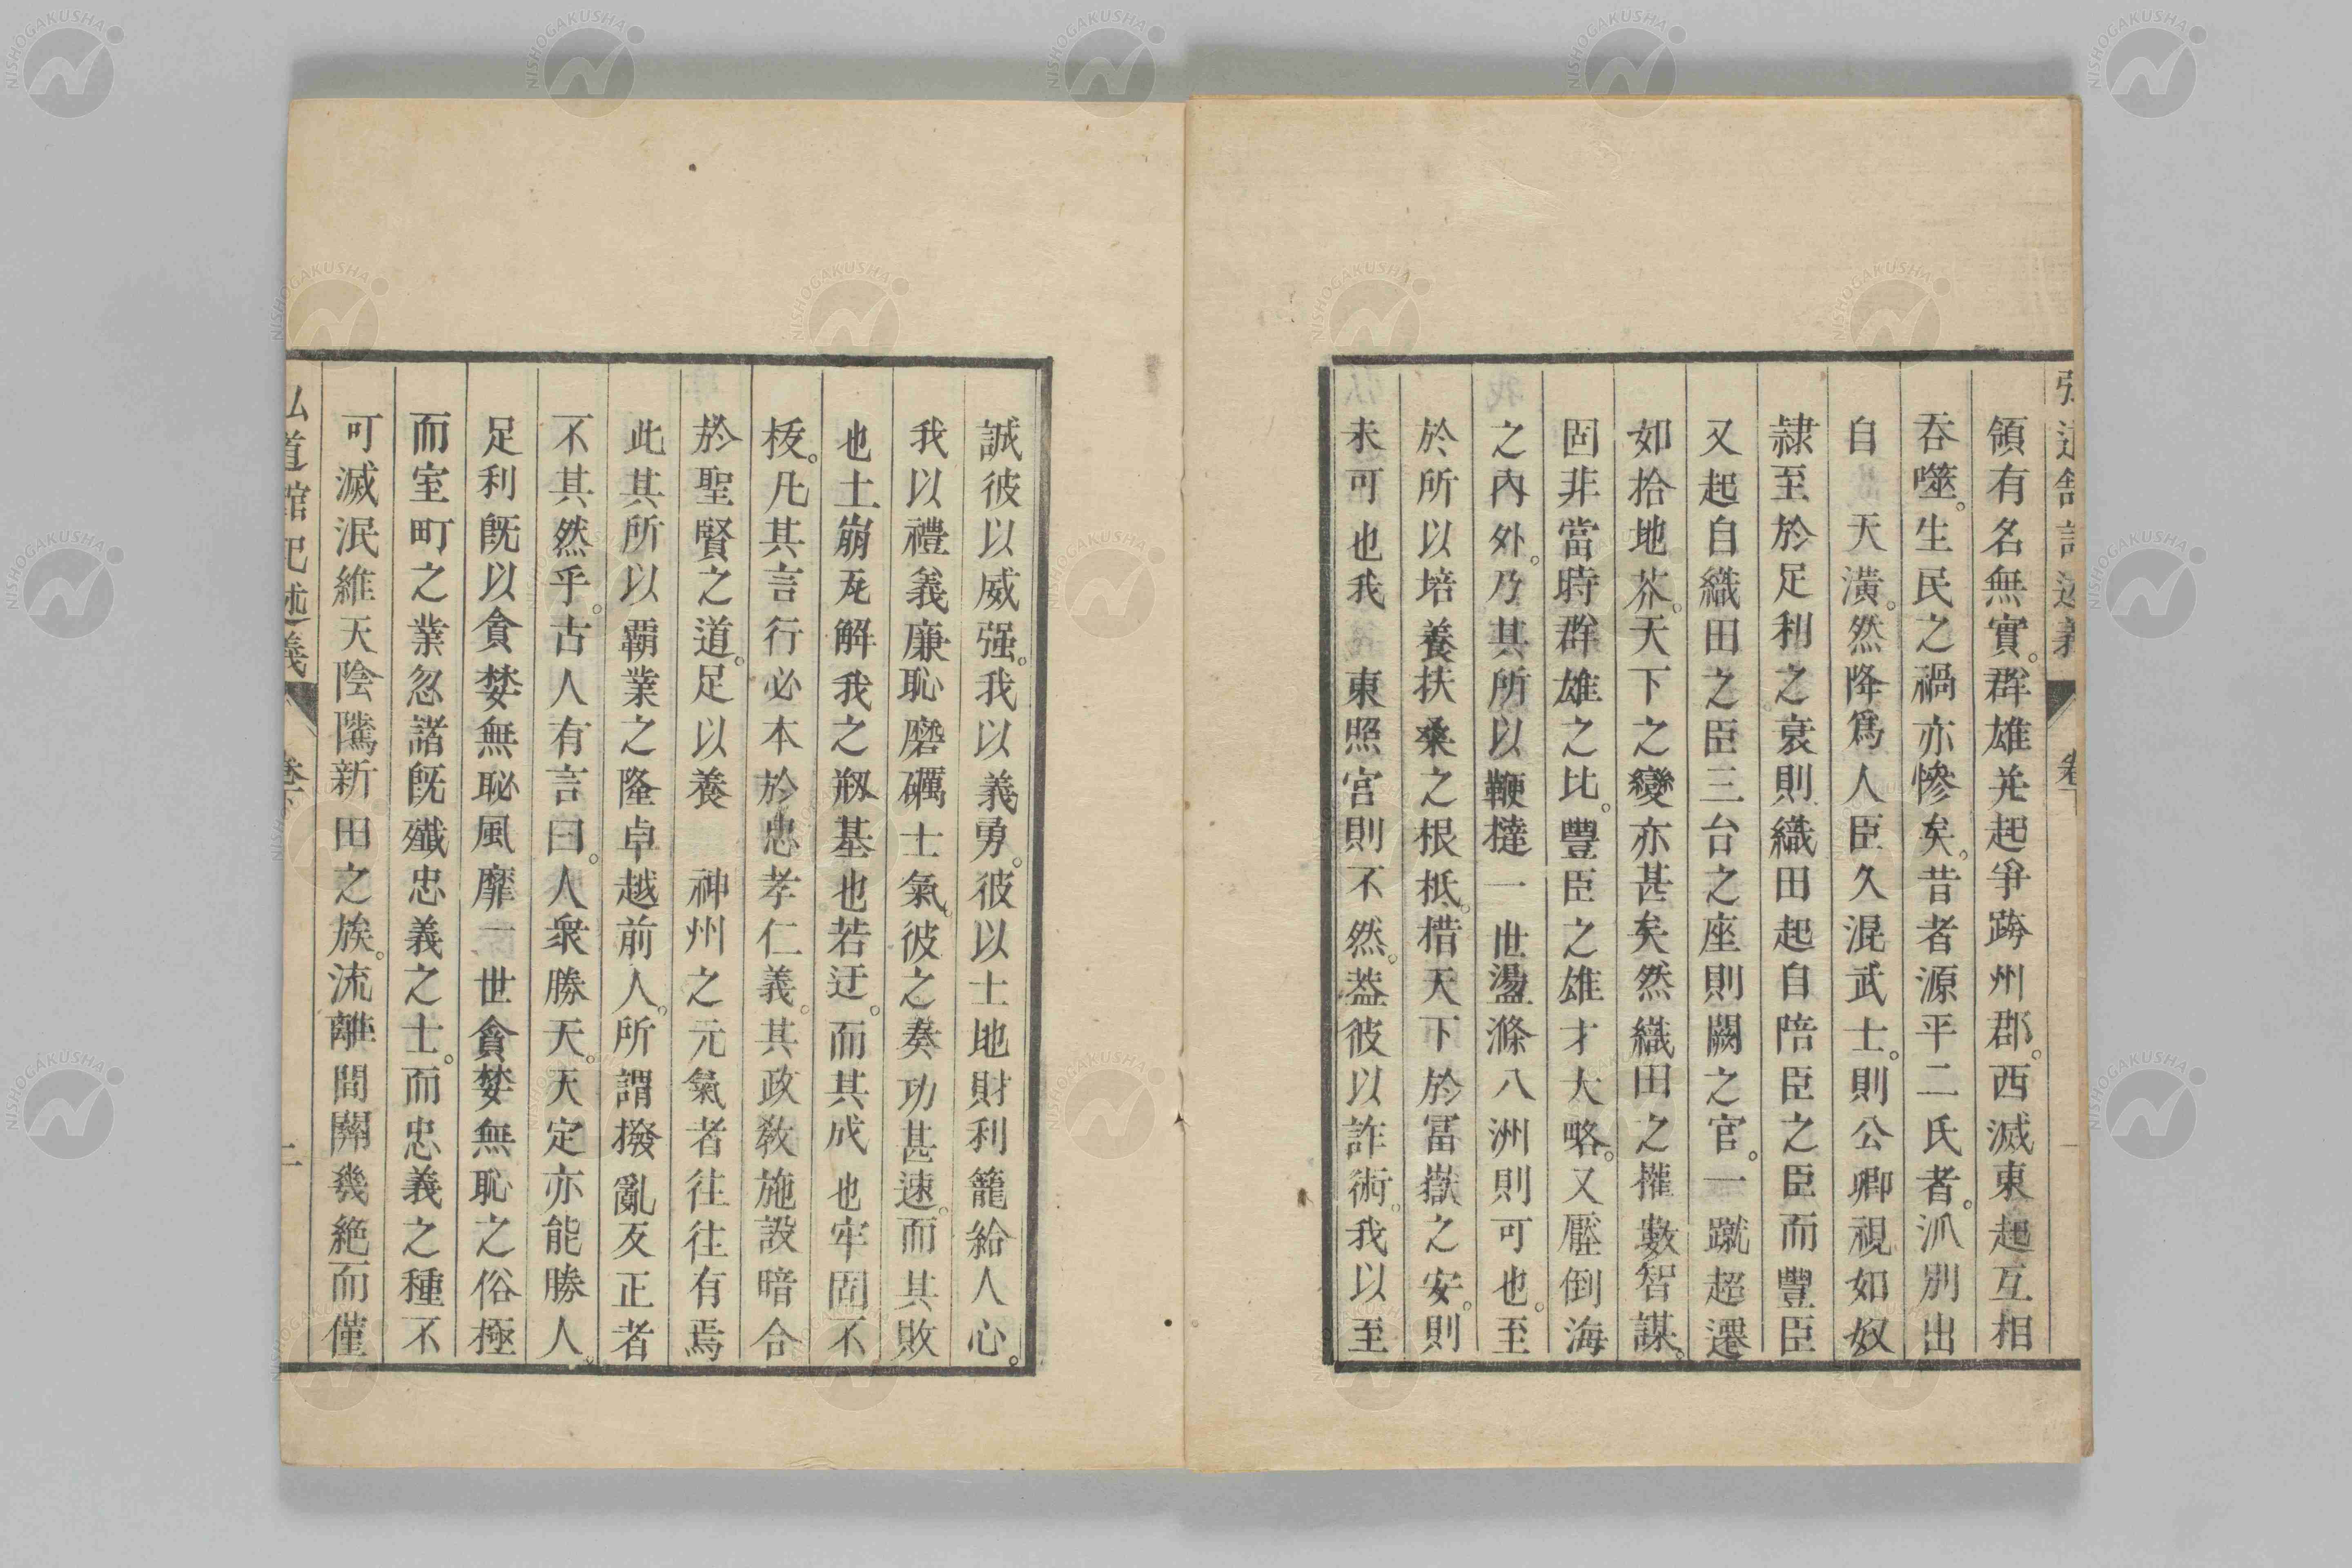 弘道館記述義 卷下 一
領有名無實。群雄並起爭跨州郡。西滅東起互相
吞噬。生民之禍亦慘矣。昔者源平二氏者。派別出
自 天潢。然降爲人臣久混武士。則公卿視如奴
隷至於足利之衰則織田起自陪臣之臣而豐臣
又起自織田之臣三台之座則闕之官。一蹴超遷
如拾地芥。天下之變亦甚矣然織田之權數智謀。
固非當時群雄之比。豐臣之雄才大略。又壓倒海
之內外。乃其所以鞭撻一世盪滌八洲則可也。至
於所以培養扶桑之根柢。措天下於冨嶽之安。則
未可也我 東照宮則不然。葢彼以詐術。我以至
誠彼以威强。我以義勇。彼以土地財利籠給人心。
我以禮義廉恥磨礪士氣。彼之奏功甚速。而其敗
也土崩瓦解我之剏基也若迂。而其成也牢固不
拔。凡其言行必本於忠孝仁義。其政敎施設暗合
於聖賢之道。足以養 神州之元氣者往往有焉
此其所以霸業之隆卓越前人。所謂撥亂反正者
不其然乎。古人有言曰。人衆勝天。天定亦能勝人。
足利旣以貪婪無恥風靡一世貪婪無恥之俗極
而室町之業忽諸旣殲忠義之士。而忠義之種不
可滅泯維天陰隲新田之族。流離間關幾絶而僅
弘道館記述義 卷下 二
NISHOGAKUSHA